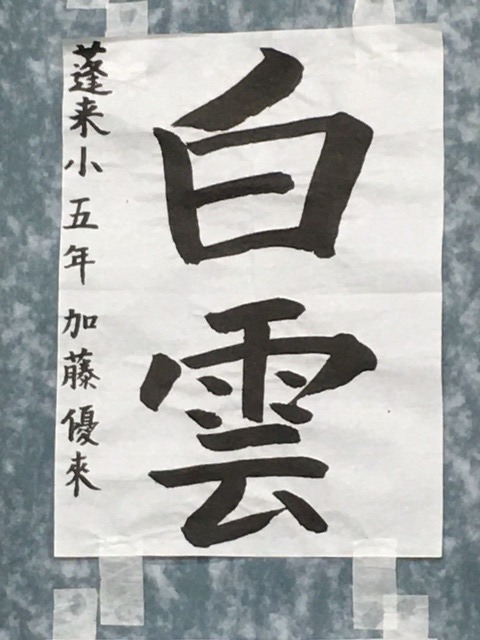 白雲
蓬来小 五年 加藤優來